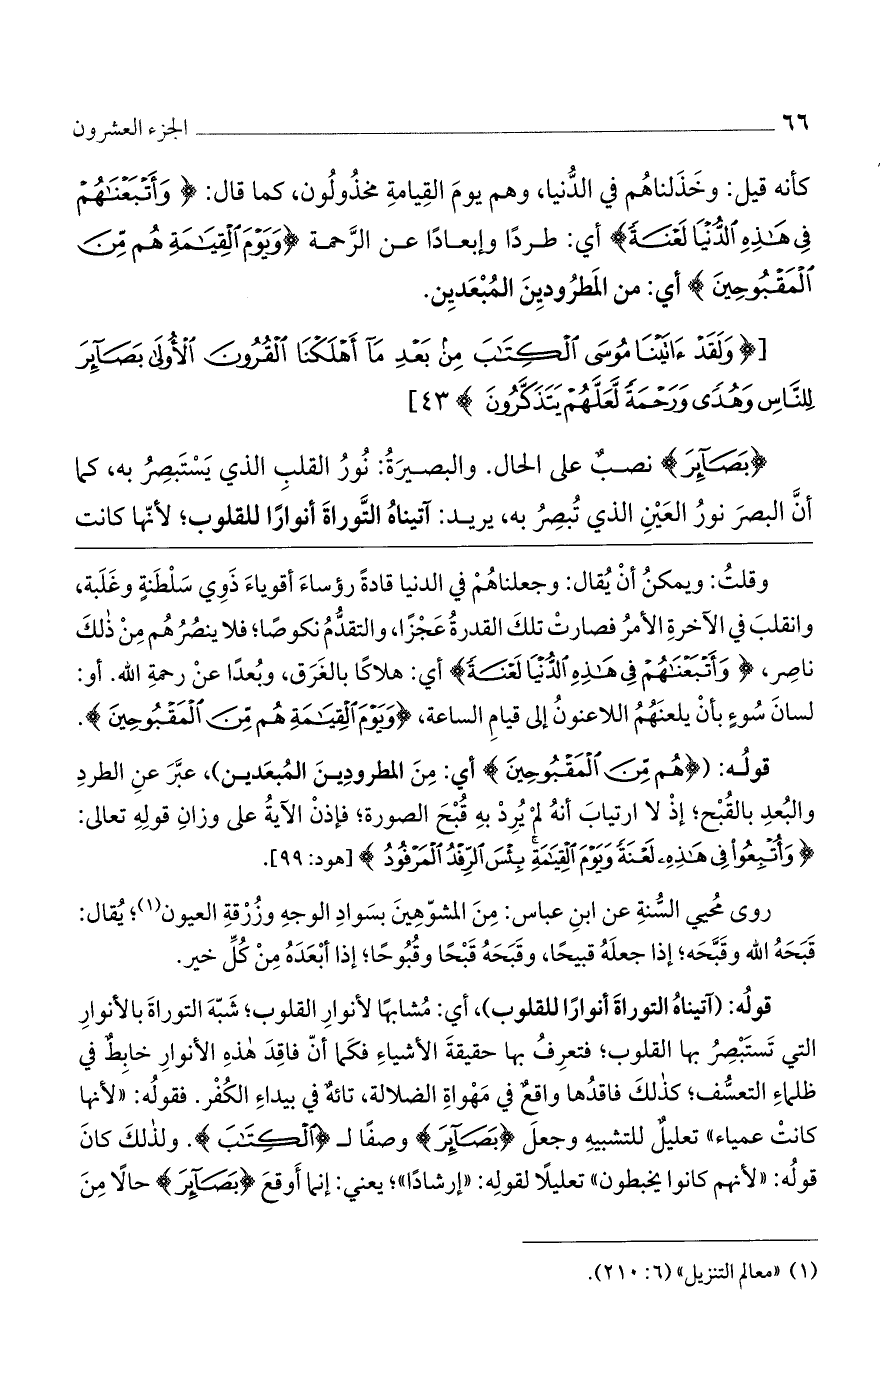 ٦٦ الجزء العشرون
كأنه قيل: وخَذَلناهُم في الدُّنيا، وهم يومَ القِيامةِ مخذُولُون، كما قال: ﴿ وَأَتْبَعْنَٰهُمْ
فِى هَٰذِهِ ٱلدُّنْيَا لَعْنَةً﴾ أي: طردًا وإبعادًا عن الرَّحمة ﴿وَيَوْمَ ٱلْقِيَٰمَةِ هُم مِّنَ
ٱلْمَقْبُوحِينَ ﴾ أي: من المَطرُودِينَ المُبْعَدين.
[﴿ وَلَقَدْ ءَاتَيْنَا مُوسَى ٱلْكِتَٰبَ مِنۢ بَعْدِ مَآ أَهْلَكْنَا ٱلْقُرُونَ ٱلْأُولَىٰ بَصَآئِرَ
لِلنَّاسِ وَهُدًى وَرَحْمَةً لَّعَلَّهُمْ يَتَذَكَّرُونَ ﴾ ٤٣]
﴿بَصَآئِرَ﴾ نصبٌ على الحال. والبصيرَةُ: نُورُ القلبِ الذي يَسْتَبصِرُ به، كما
أنَّ البصرَ نورُ العَيْنِ الذي تُبصِرُ به، يريد: آتيناهُ التَّوراةَ أنوارًا للقلوب؛ لأنّها كانت
وقلتُ: ويمكنُ أنْ يُقال: وجعلناهُمْ في الدنيا قادةً رؤساءَ أقوياءَ ذَوِي سَلْطَنةٍ وغَلَبة،
وانقلبَ في الآخرةِ الأمرُ فصارتْ تلكَ القدرةُ عَجْزًا، والتقدُّمُ نكوصًا؛ فلا ينصُرُهُم مِنْ ذٰلكَ
ناصِر، ﴿ وَأَتْبَعْنَٰهُمْ فِى هَٰذِهِ ٱلدُّنْيَا لَعْنَةً﴾ أي: هلاكًا بالغَرَق، وبُعدًا عنْ رحمةِ الله. أو:
لسانَ سُوءٍ بأنْ يلعنَهُمُ اللاعنونُ إلى قيامِ الساعة، ﴿وَيَوْمَ ٱلْقِيَٰمَةِ هُم مِّنَ ٱلْمَقْبُوحِينَ ﴾.
قولُه: (﴿هُم مِّنَ ٱلْمَقْبُوحِينَ ﴾ أي: مِنَ المطرودِينَ المُبعَدين)، عبَّرَ عنِ الطردِ
والبُعدِ بالقُبْح؛ إذْ لا ارتيابَ أنهُ لمْ يُرِدْ بهِ قُبْحَ الصورة؛ فإذنْ الآيةُ على وزانِ قولِهِ تعالى:
﴿ وَأُتْبِعُوا۟ فِى هَٰذِهِۦ لَعْنَةً وَيَوْمَ ٱلْقِيَٰمَةِ ۚ بِئْسَ ٱلرِّفْدُ ٱلْمَرْفُودُ ﴾ [هود: ٩٩].
روى مُحيي السُّنةِ عن ابنِ عباس: مِنَ المشوّهِينَ بسَوادِ الوجهِ وزُرْقةِ العيون(١)؛ يُقال:
قَبَحَهُ الله وقَبَّحَه؛ إذا جعلَهُ قبيحًا، وقَبَحَهُ قَبْحًا وقُبُوحًا؛ إذا أبْعَدَهُ مِنْ كُلِّ خير.
قولُه: (آتيناهُ التوراةَ أنوارًا للقلوب)، أي: مُشابهًا لأنوارِ القلوب؛ شَبّهَ التوراةَ بالأنوارِ
التي تَستَبْصِرُ بها القلوب؛ فتعرِفُ بها حقيقةَ الأشياءِ فكَما أنّ فاقِدَ هٰذهِ الأنوارِ خابِطٌ في
ظلماءِ التعسُّف؛ كذٰلكَ فاقدُها واقعٌ في مَهْواةِ الضلالة، تائهٌ في بيداءِ الكُفْر. فقولُه: «لأنها
كانتْ عمياء» تعليلٌ للتشبيهِ وجعلَ ﴿بَصَآئِرَ﴾ وصفًا لـ ﴿ٱلْكِتَٰبَ ﴾. ولذٰلكَ كانَ
قولُه: «لأنهم كانوا يخبطون» تعليلًا لقولِه: «إرشادًا»؛ يعني: إنما أَوقعَ ﴿بَصَآئِرَ﴾ حالًا مِنَ
(١) «معالم التنزيل» (٦: ٢١٠).